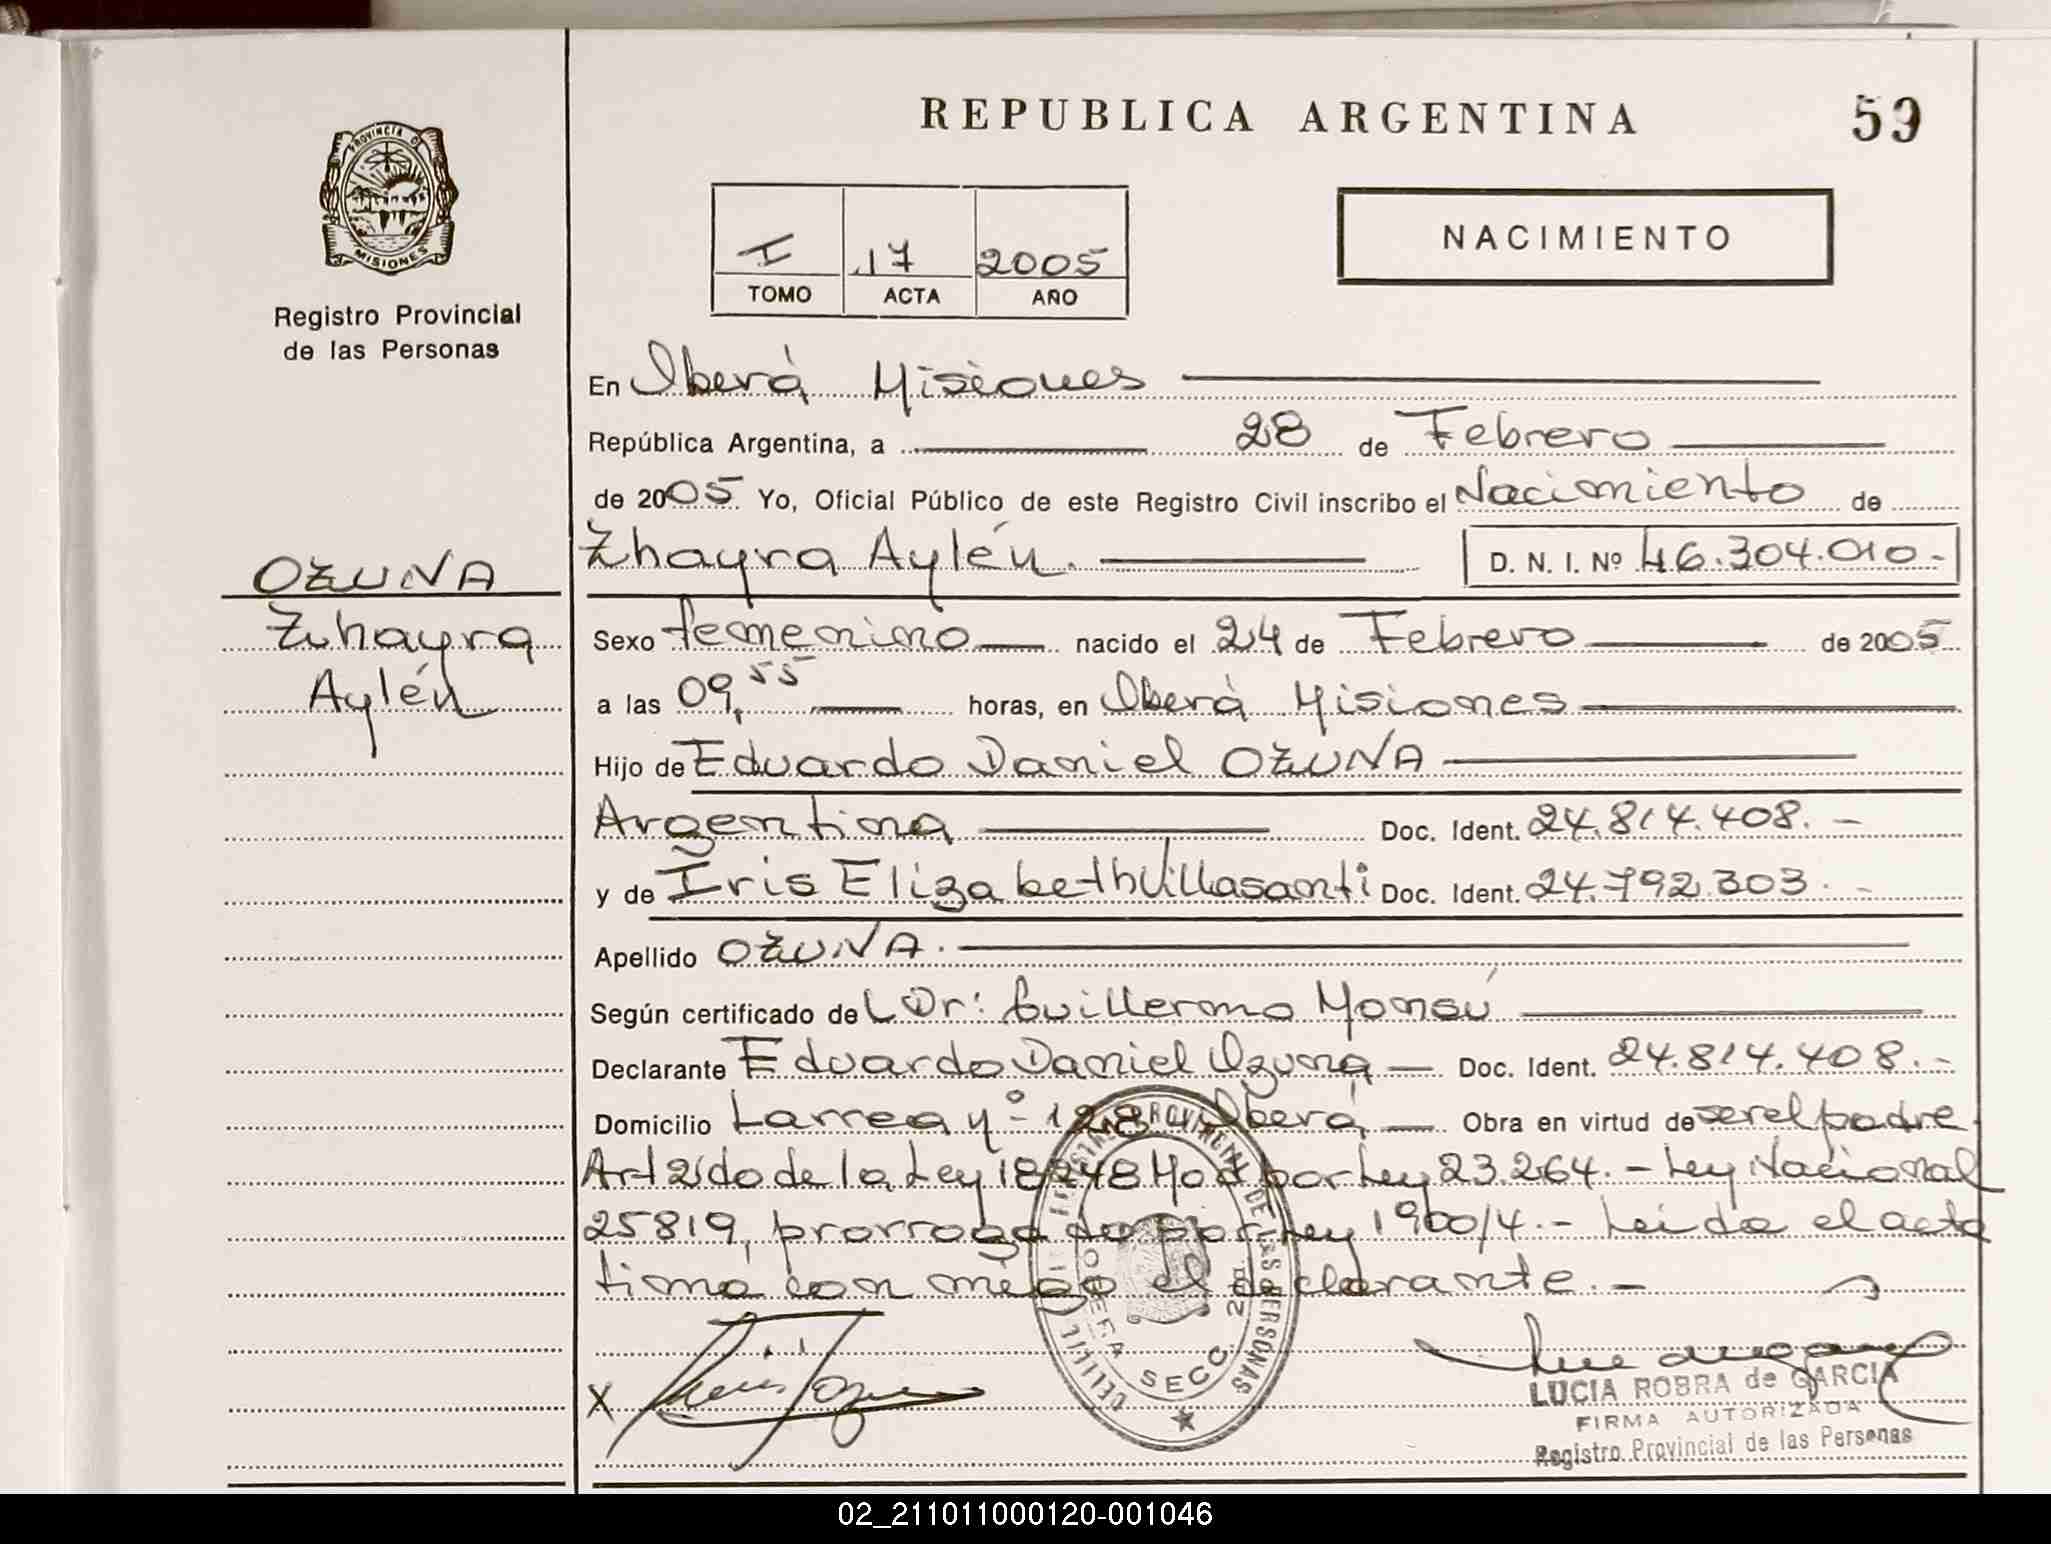 REPUBLICA ARGENTINA
59
PROVINCIA D
MISIONES
Registro Provincial
de las Personas
I 17 2005
TOMO ACTA AÑO
NACIMIENTO
En Oberá Misiones
República Argentina, a 28 de Febrero
de 2005 Yo, Oficial Público de este Registro Civil inscribo el Nacimiento de
Zhayra Aylén. D. N. I. Nº 46.304.010.-
OZUNA
Zhayra
Aylén
Sexo femenino nacido el 24 de Febrero de 2005
a las 09,55 horas, en Oberá Misiones
Hijo de Eduardo Daniel OZUNA
Argentina Doc. Ident. 24.814.408.-
y de Iris Elizabeth Villasanti Doc. Ident. 24.792.303.-
Apellido OZUNA.
Según certificado de Dr: Guillermo Monsú
Declarante Eduardo Daniel Ozuna Doc. Ident. 24.814.408.-
Domicilio Larrea nº 128 Oberá Obra en virtud de ser el padre.
Art 2do de la Ley 18248 Mod por Ley 23.264.- Ley Nacional
25819, prorrogado por Ley 1900/4.- Leida el acta
firma con migo el declarante.-
X
REGISTRO PROVINCIAL DE LAS PERSONAS
OBERA SECC. 2da
LUCIA ROBRA de GARCIA
FIRMA AUTORIZADA
Registro Provincial de las Personas
02_211011000120-001046